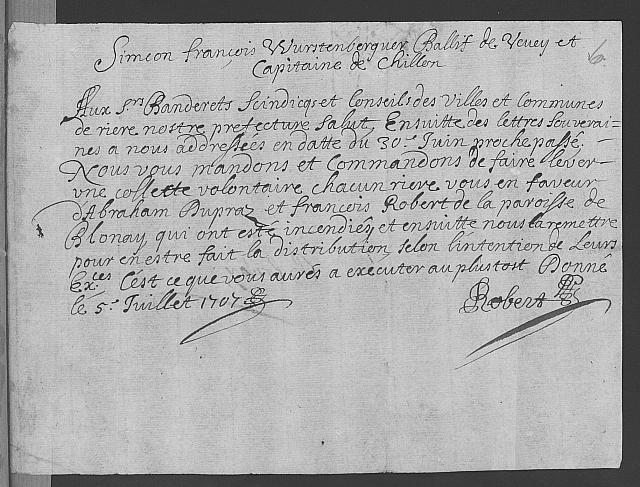 Simeon françois Wurstenberguer Ballif de Vevey et
Capitaine de Chillon
Aux Srs Banderets Scindicqs et Conseils des Villes et Communes
de riere nostre prefecture Salut, Ensuitte des lettres souverai-
nes a nous addressées en datte du 30e Juin proche passé,
Nous vous mandons et Commandons de faire lever
vne collette volontaire chacun riere vous en faveur
d'Abraham Dupraz et françois Robert de la paroisse de
Blonay, qui ont esté incendiéz et ensuitte nous la remettre
pour en estre fait la distribution selon l'intention de Leurs
Exces C'est ce que vous aurés a executer au plustost Donné
le 5e Juillet 1707
Robert